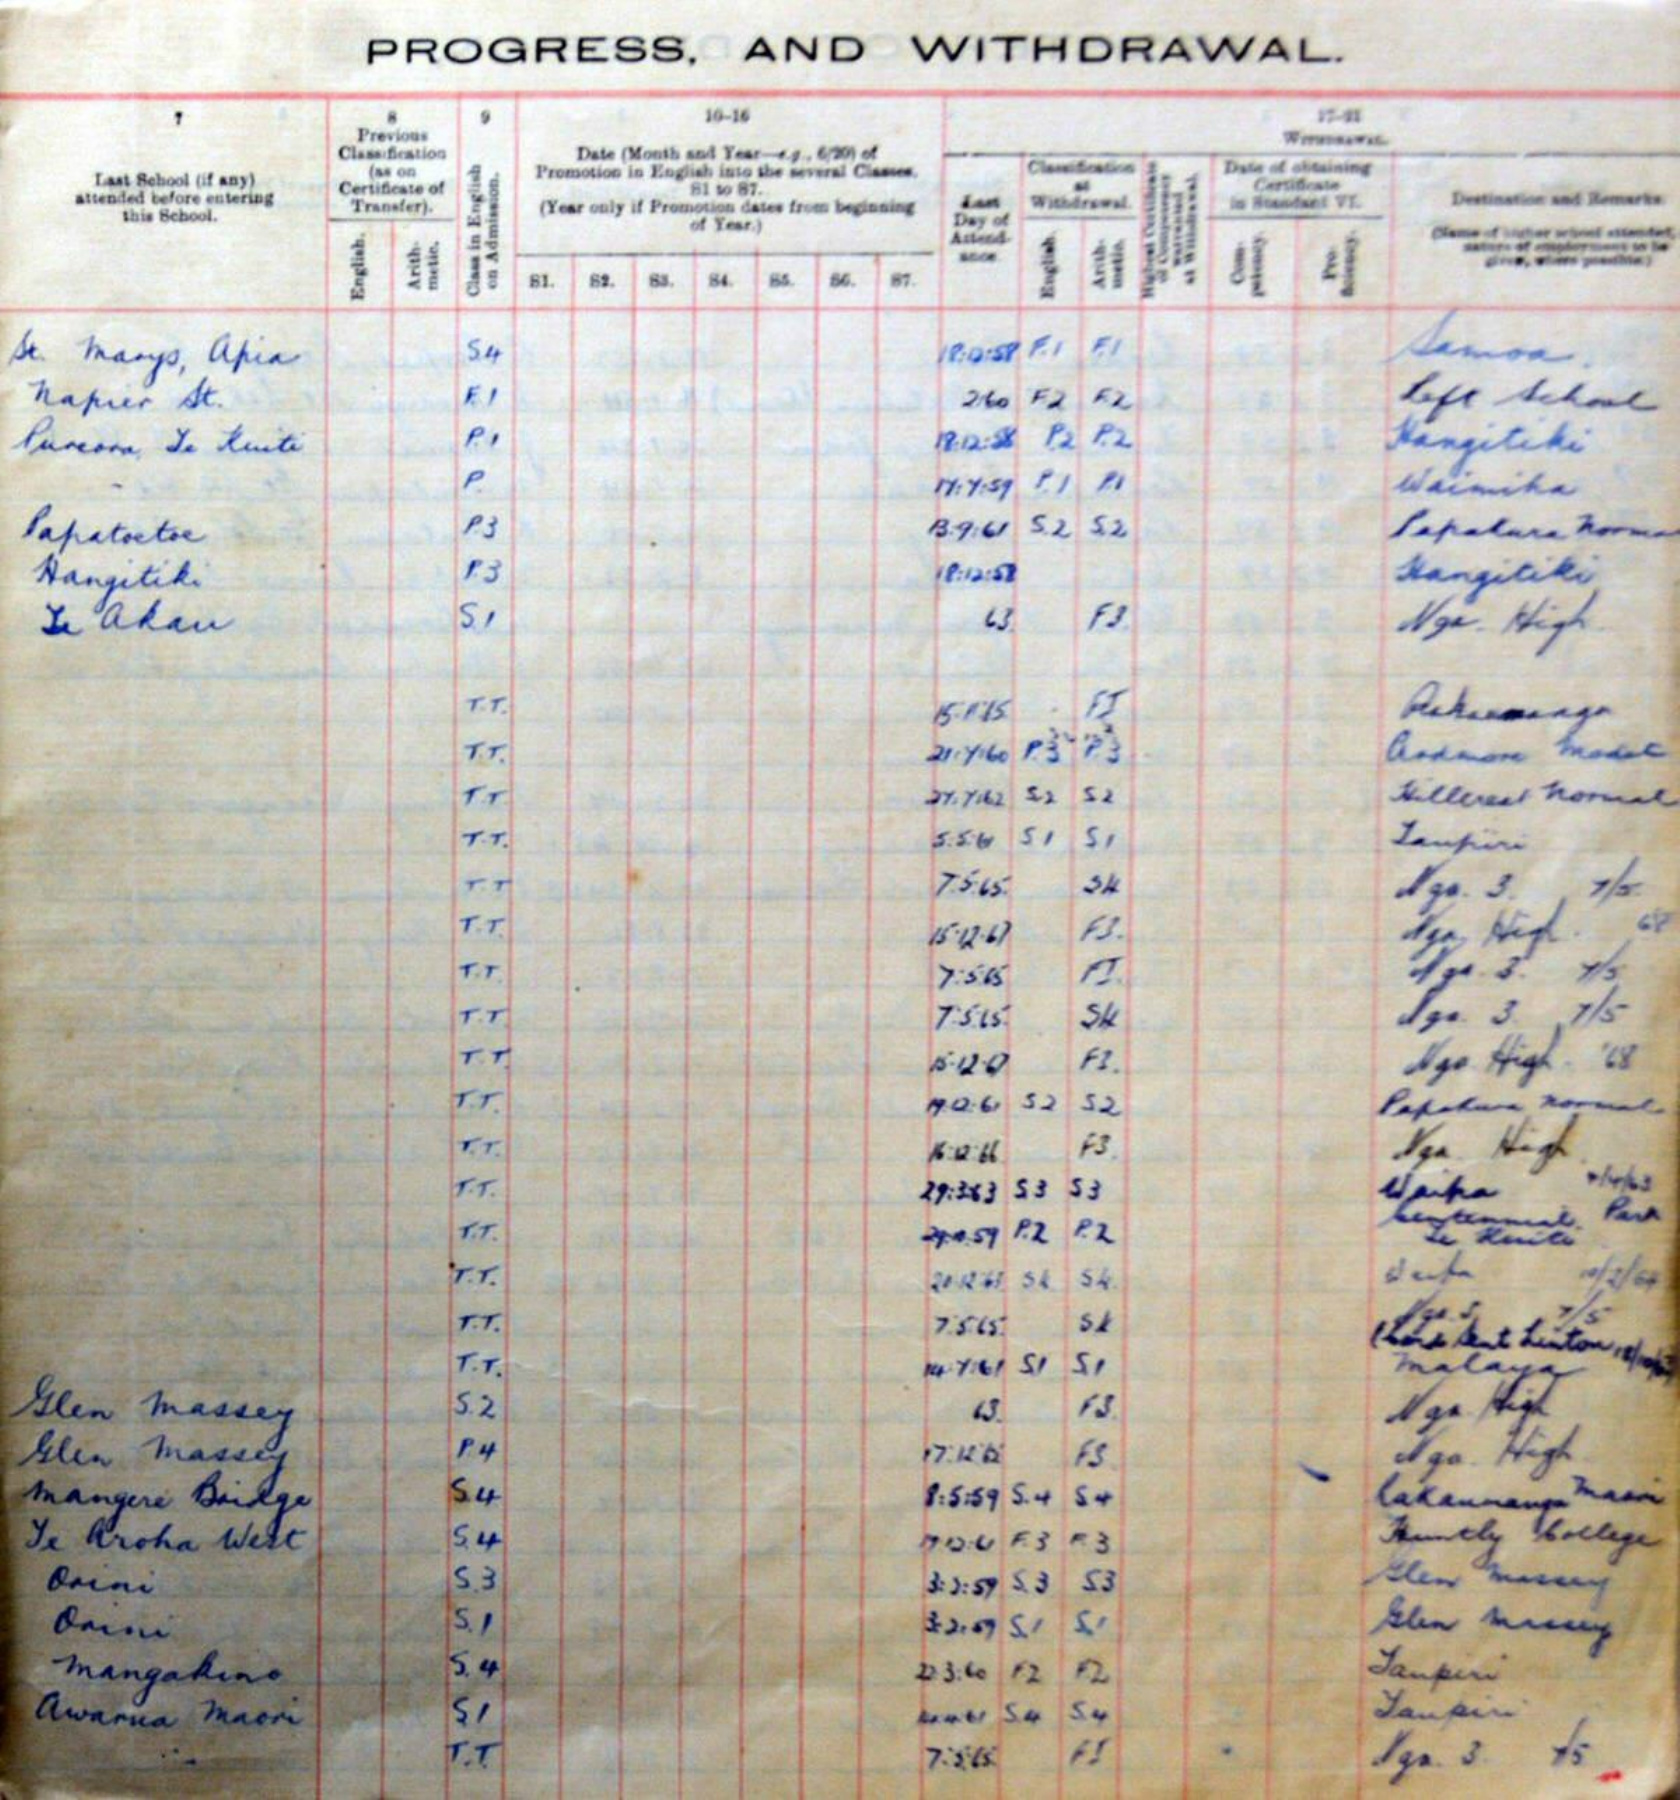 PROGRESS, AND WITHDRAWAL.
7 8 9 10–16 17–21
Last School (if any) attended before entering this School.
Previous Classification (as on Certificate of Transfer).
English. Arith-metic.
Class in English on Admission.
Date (Month and Year—e.g., 6/20) of Promotion in English into the several Classes, S1 to S7.
(Year only if Promotion dates from beginning of Year.)
S1. S2. S3. S4. S5. S6. S7.
Withdrawal.
Last Day of Attend-ance
Classification at Withdrawal.
English. Arith-metic.
Highest Certificate of Competency warranted at Withdrawal.
Date of obtaining Certificate in Standard VI.
Com-petency. Pro-ficiency.
Destination and Remarks
(Name of higher school attended, nature of employment to be given, where possible.)
St. Marys, Apia S.4 18:12:58 F.1 F.1 Samoa.
Napier St. F.1 2:60 F2 F2 Left School
Te Kuiti P.1 18:12:58 P.2 P.2 Hangitiki
P. 17:7:59 P.1 P.1
Papatoetoe P.3 13:9:61 S.2 S.2 Papakura Norma
Hangitiki P.3 18:12:58 Hangitiki
Te Akau S.1 63. F3. Nga. High.
T.T. FI
T.T. 21:7:60 P.3 P.3 Ardmore Model
T.T 27.7.62 S.2 S2 Hillcrest Normal
T.T. 5:5:61 S1 S1 Taupiri
T.T 7:5:65. S4 Nga. 3. 7/5.
T.T. 15:12:67 F3. Nga High. 68
T.T. 7:5:65 FI. Nga. 3. 7/5
T.T 7:5:65. S4 Nga. 3. 7/5
T.T 15-12-67 F3. Nga High. '68
T.T. 19:12:61 S2 S2 Papakura Normal
T.T. 16:12:66 F3. Nga. High.
T.T. 29:3:63 S3 S3 Waipa
T.T. P.2 P.2 Centennial Park
Te Kuiti
T.T. S4 S4 10/2/64
T.T. 7:5:65. S4 Nga 3 7/5
T.T. 14:7:61 S1 S1 Malaya
Glen Massey S.2 63. F3. Nga. High
Glen Massey P.4 F3 Nga. High
Mangere Bridge S.4 8:5:59 S.4 S4 Rakaumanga Maori
Te Aroha West S.4 F.3 F.3 Huntly College
Orini S.3 3:2:59 S.3 S3 Glen Massey
Orini S.1 3:2:59 S.1 S.1 Glen Massey
Mangakino S.4 3:60 F2 F2 Taupiri
Awarua Maori S.1 S.4 S.4 Taupiri
T.T. 7:5:65. FI Nga. 3. 7/5